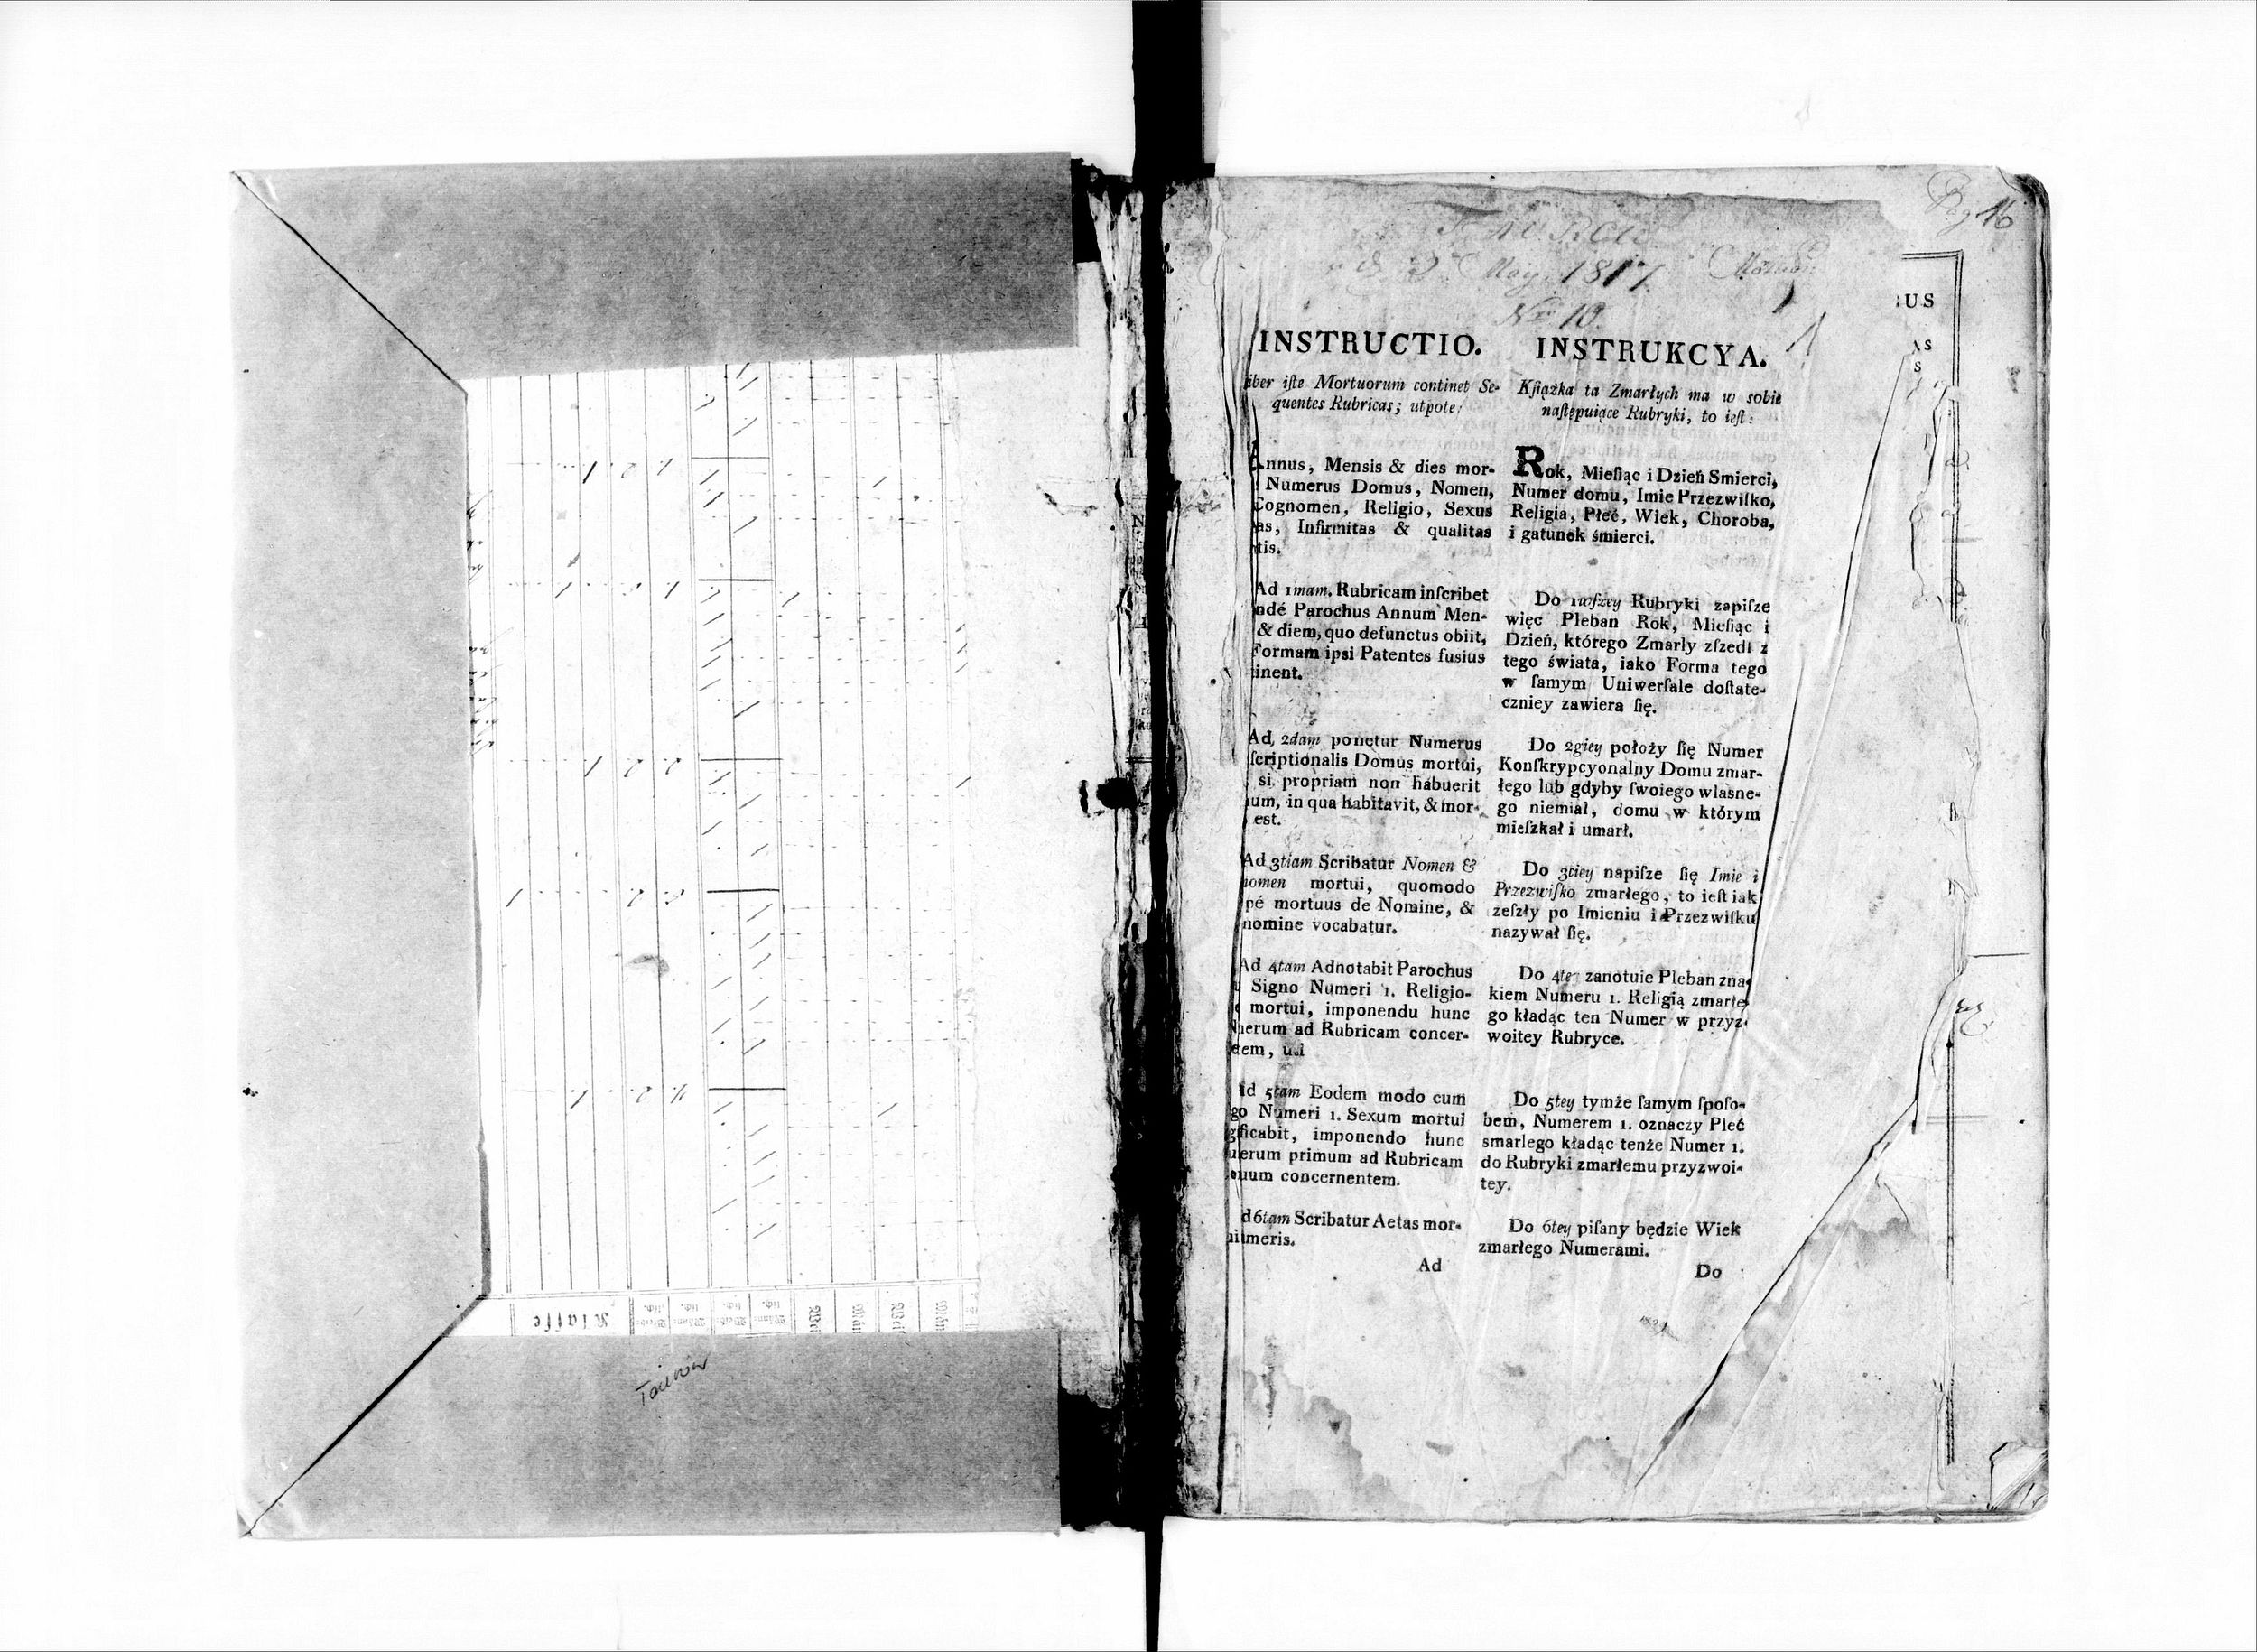 Pag 16
May 1817
Nro 10.
INSTRUCTIO.
iber iſte Mortuorum continet Se-
quentes Rubricas; utpote:
Annus, Mensis & dies mor-
Numerus Domus, Nomen,
Cognomen, Religio, Sexus
as, Infirmitas & qualitas
tis.
Ad 1mam. Rubricam inſcribet
ndé Parochus Annum Men-
& diem, quo defunctus obiit,
Formam ipsi Patentes fusius
tinent.
Ad 2dam ponetur Numerus
ſcriptionalis Domus mortui,
si propriam non habuerit
um, in qua habitavit, & mor-
est.
Ad 3tiam Scribatur Nomen &
nomen mortui, quomodo
pé mortuus de Nomine, &
nomine vocabatur.
Ad 4tam Adnotabit Parochus
Signo Numeri 1. Religio-
mortui, imponendu hunc
merum ad Rubricam concer-
tem,
Ad 5tam Eodem modo cum
go Numeri 1. Sexum mortui
gificabit, imponendo hunc
merum primum ad Rubricam
uum concernentem.
d 6tam Scribatur Aetas mor-
umeris.
Ad
INSTRUKCYA.
Kſiążka ta Zmarłych ma w sobie
naſtępuiące Rubryki, to ieſt:
Rok, Mieſiąc i Dzień Smierci,
Numer domu, Imie Przezwiſko,
Religia, Płeć, Wiek, Choroba,
i gatunek śmierci.
Do 1wſzey Rubryki zapiſze
więc Pleban Rok, Mieſiąc i
Dzień, którego Zmarly zſzedł z
tego świata, iako Forma tego
w ſamym Uniwerſale doſtate-
czniey zawiera ſię.
Do 2giey położy ſię Numer
Konſkrypcyonalny Domu zmar-
łego lub gdyby ſwoiego wlasne-
go niemiał, domu w którym
mieſzkał i umarł.
Do 3ciey napiſze ſię Imie i
Przezwiſko zmarłego, to ieſt iak
zeſzły po Imieniu i Przezwiſku
nazywał ſię.
Do 4tey zanotuie Pleban zna-
kiem Numeru 1. Religią zmarłe-
go kładąc ten Numer w przyz-
woitey Rubryce.
Do 5tey tymże ſamym ſpoſo-
bem, Numerem 1. oznaczy Płeć
smarlego kładąc tenże Numer 1.
do Rubryki zmarłemu przyzwoi-
tey.
Do 6tey piſany będzie Wiek
zmarłego Numerami.
Do
US
AS
S
Klaſſe